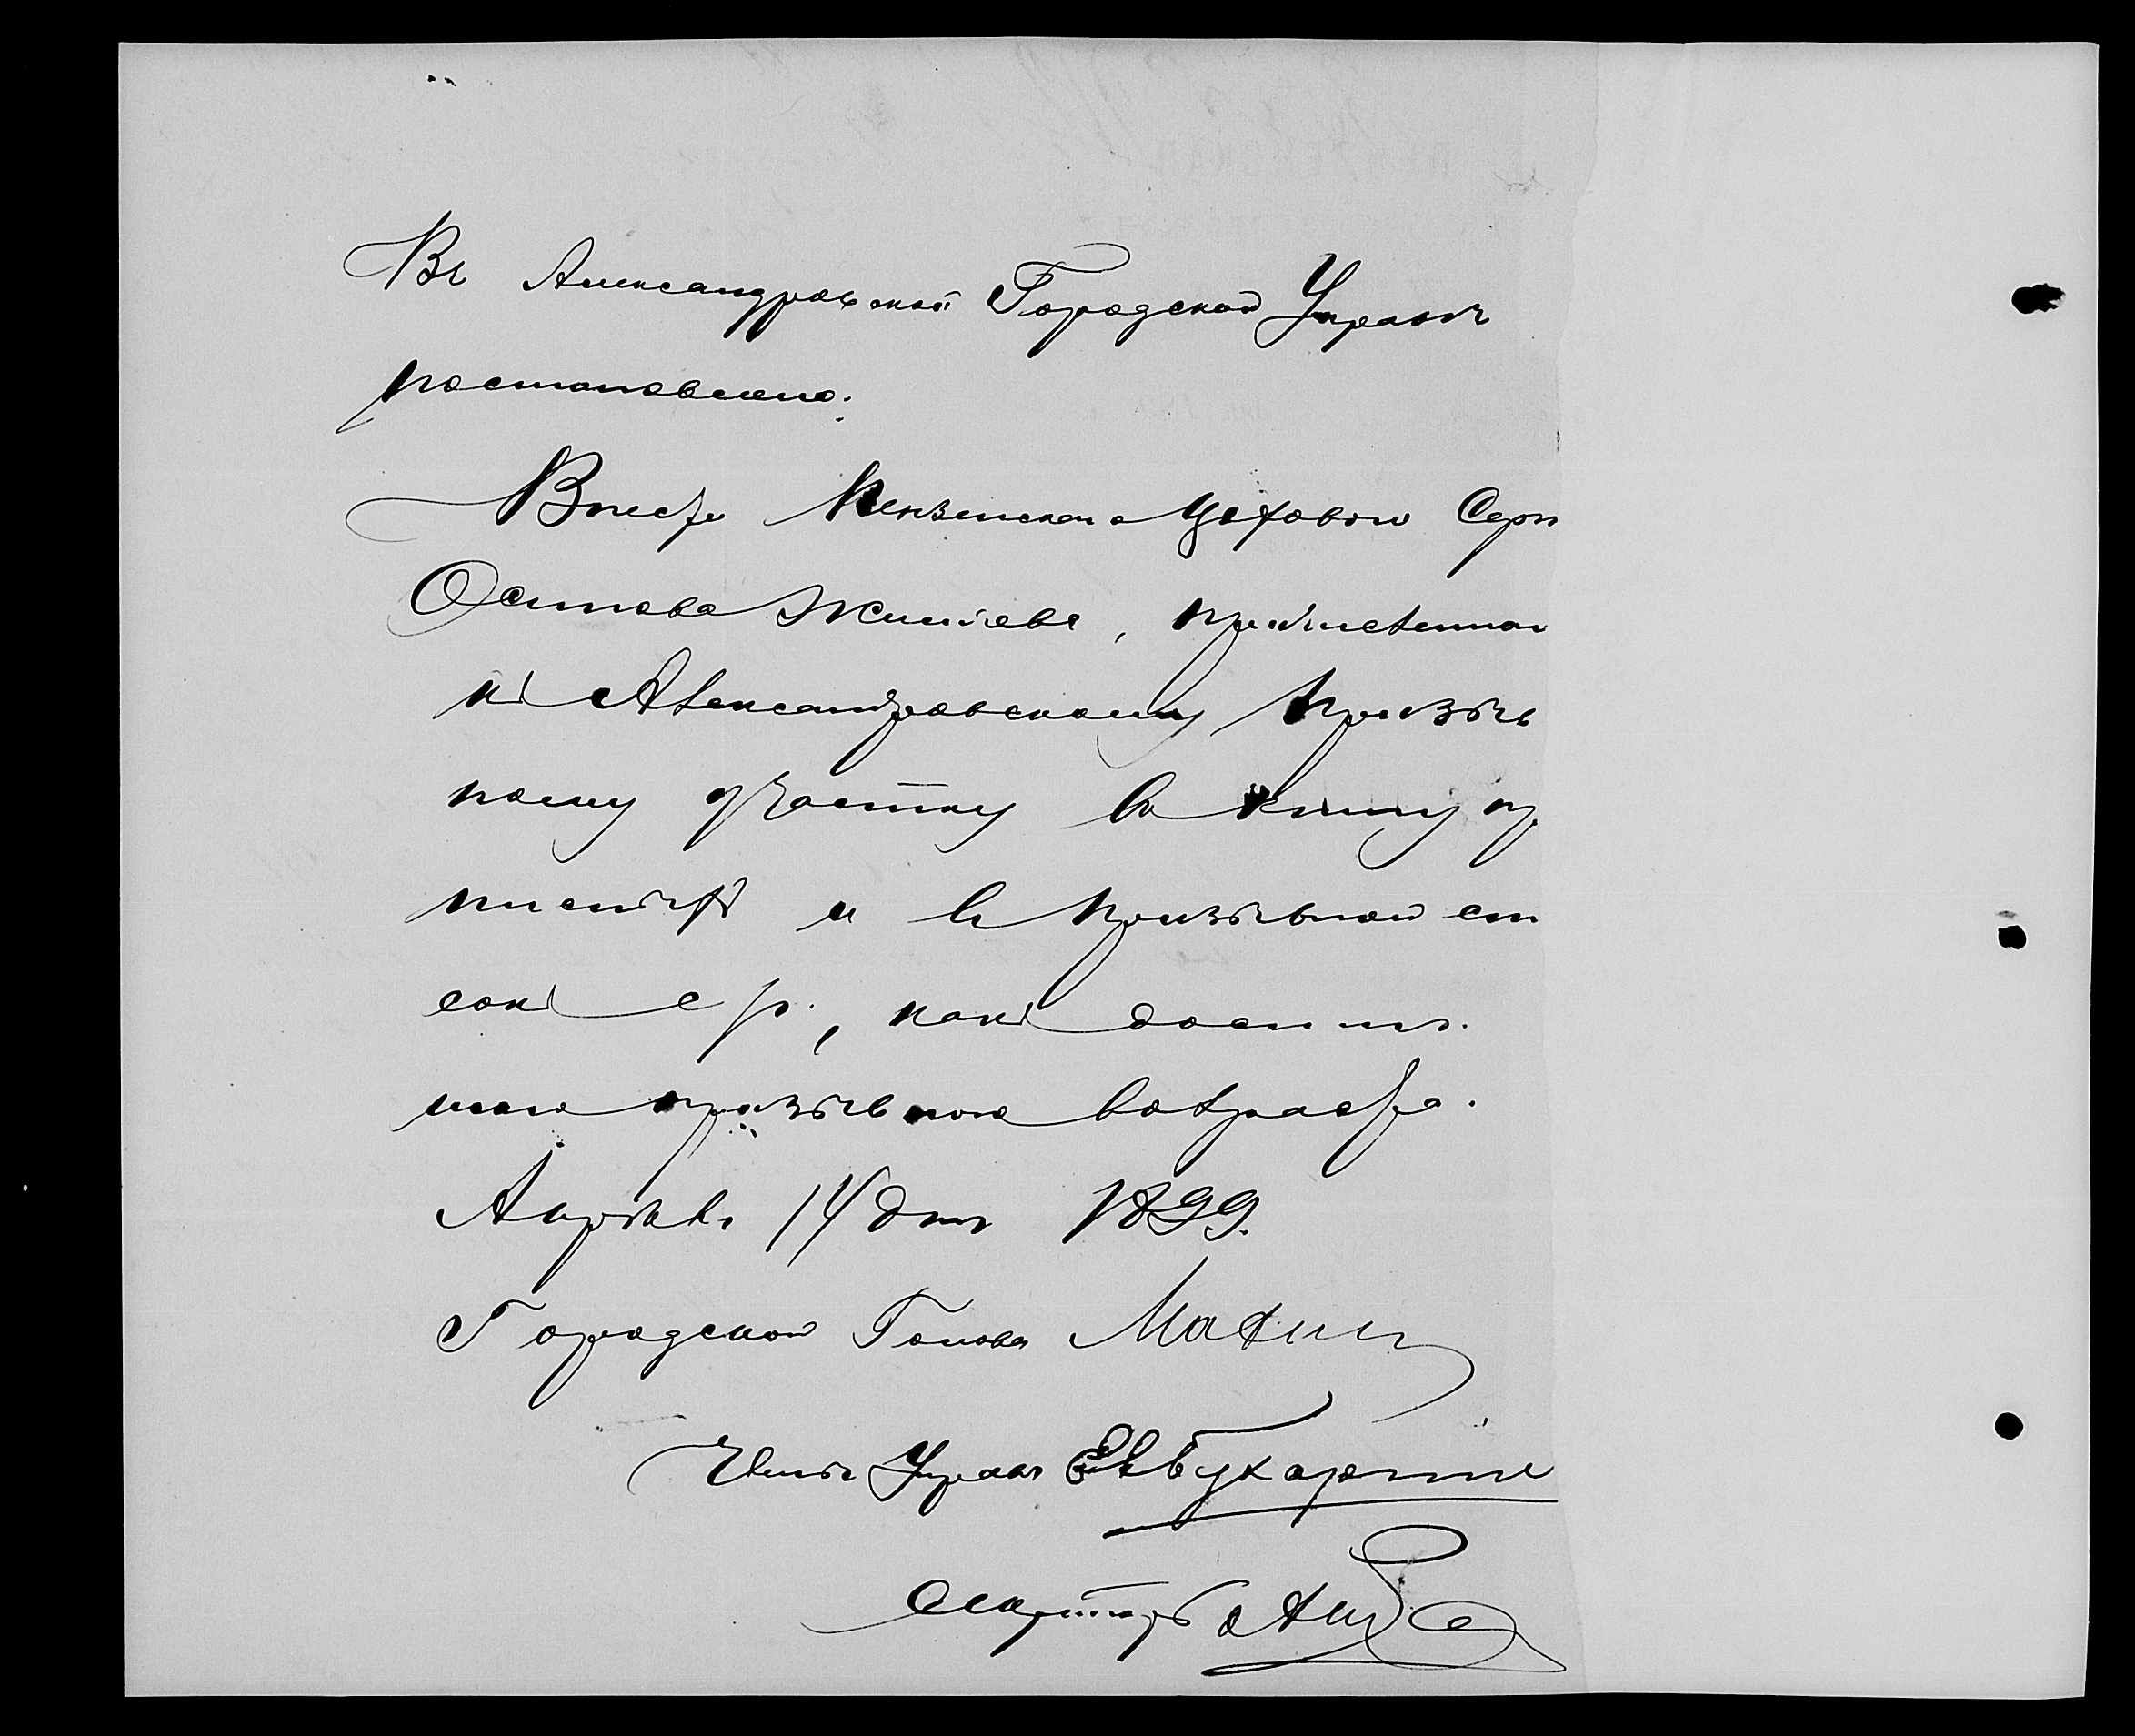 Въ Александровской Городской Управѣ
постановлено:
Внести Пензенскаго Цеховаго Сер
Осипова Жиляева, приписаннаго
къ Александровскому призыв
ному участку въ книгу пр
писныхъ и въ призывной сп
сокъ с/г., какъ достиг
шаго призывного возраста.
Апрѣля 14 дня 1899.
Городской Голова
Членъ Управы Бухаринъ
Секретарь